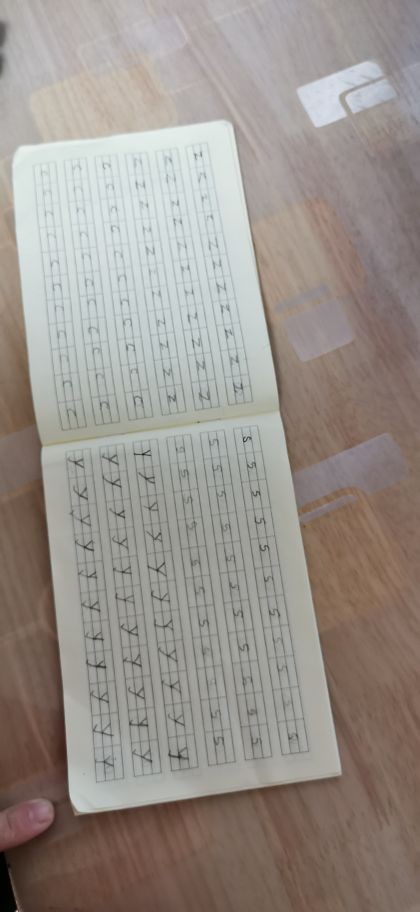 z z z z z z z z z z z
z z z z z z z z z z z
z z z z z z z z z z z
c c c c c c c c c c c
c c c c c c c c c c c
c c c c c c c c c c c
s s s s s s s s s s s
s s s s s s s s s s s
s s s s s s s s s s s
y y y y y y y y y y y
y y y y y y y y y y y
y y y y y y y y y y y